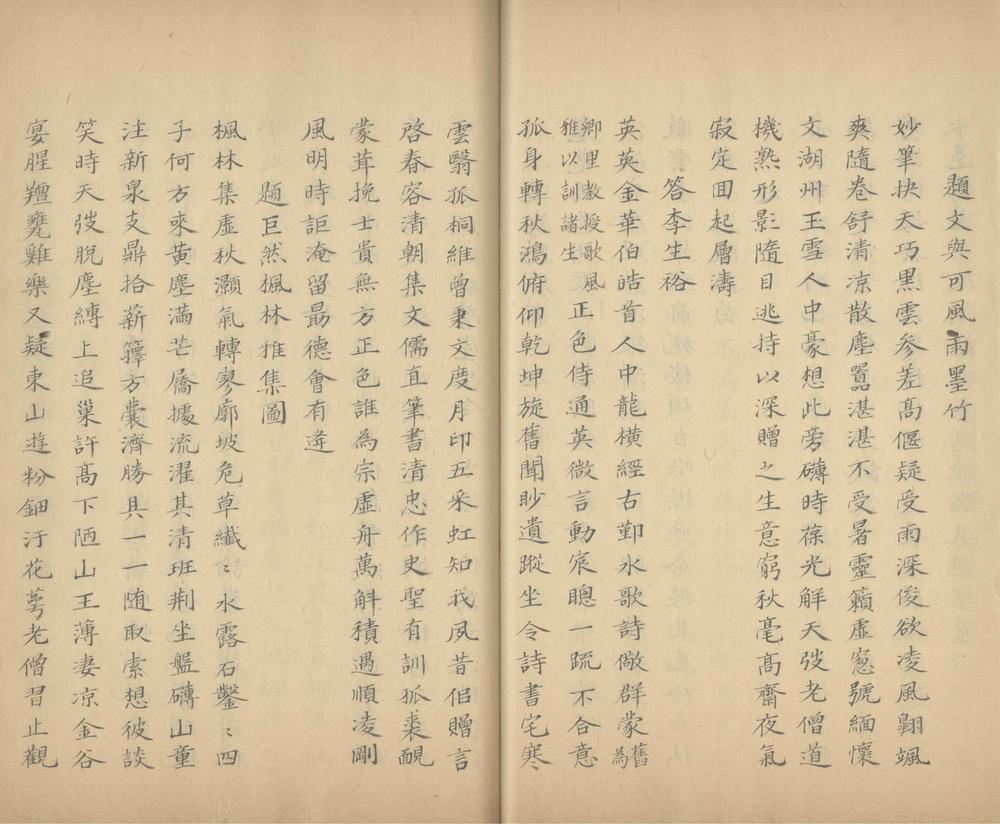 題文與可風雨墨竹
妙筆抉天巧黑雲參差髙偃疑受雨深俊欲凌風翺颯
爽隨卷舒清凉散塵嚚湛湛不受暑靈籟虛窻號緬懷
文湖州玉雪人中豪想此旁礴時葆光解天弢老僧道
機熟形影隨目逃持以深贈之生意窮秋毫髙齋夜氣
寂定囬起層濤
答李生裕
英英金華伯皓首人中龍橫經古鄞水歌詩儆群蒙舊為
鄉里教授歌風
雅以訓諸生
正色侍通英微言動宸聰一䟽不合意
孤身轉秋鴻俯仰乾坤旋舊聞眇遺蹤坐令詩書宅寒
雲翳孤桐維曾秉文度月印五采虹知我夙昔侶贈言
啓春容清朝集文儒直筆書清忠作史聖有訓狐裘靦
蒙茸挽士貴無方正色誰為宗虛舟萬斛積遇順凌剛
風明時詎淹留勗德會有逄
題巨然楓林雅集圖
楓林集虛秋灝氣轉寥廓坡危草纖〻水露石鑿〻四
子何方來黃塵滿芒屩據流濯其清班荆坐盤礴山童
注新泉支鼎拾薪籜方囊濟勝具一一随取索想彼談
笑時天弢脫塵縛上追巢許髙下陋山王薄凄凉金谷
宴腥羶甕雞樂又疑東山遊粉鈿汙花萼老僧習止觀